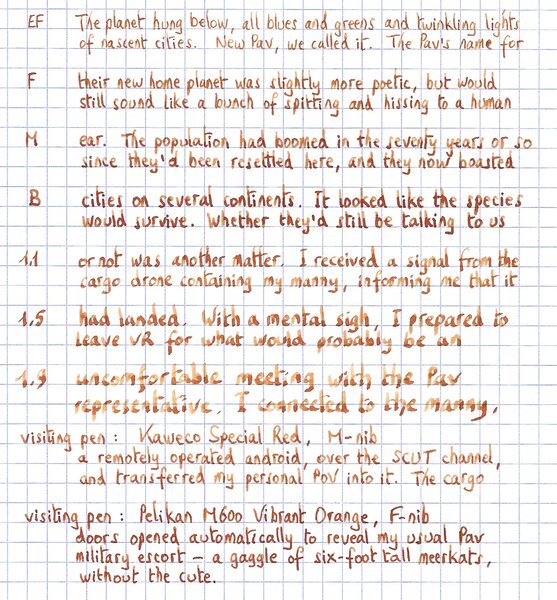 EF The planet hung below, all blues and greens and twinkling lights
of nascent cities. New Pav, we called it. The Pav's name for
F their new home planet was slightly more poetic, but would
still sound like a bunch of spitting and hissing to a human
M ear. The population had boomed in the seventy years or so
since they'd been resettled here, and they now boasted
B cities on several continents. It looked like the species
would survive. Whether they'd still be talking to us
1.1 or not was another matter. I received a signal from the
cargo drone containing my manny, informing me that it
1.5 had landed. With a mental sigh, I prepared to
leave VR for what would probably be an
1.9 uncomfortable meeting with the Pav
representative. I connected to the manny,
visiting pen : Kaweco Special Red, M-nib
a remotely operated android, over the SCUT channel,
and transferred my personal PoV into it. The cargo
visiting pen : Pelikan M600 Vibrant Orange, F-nib
doors opened automatically to reveal my usual Pav
military escort – a gaggle of six-foot tall meerkats,
without the cute.